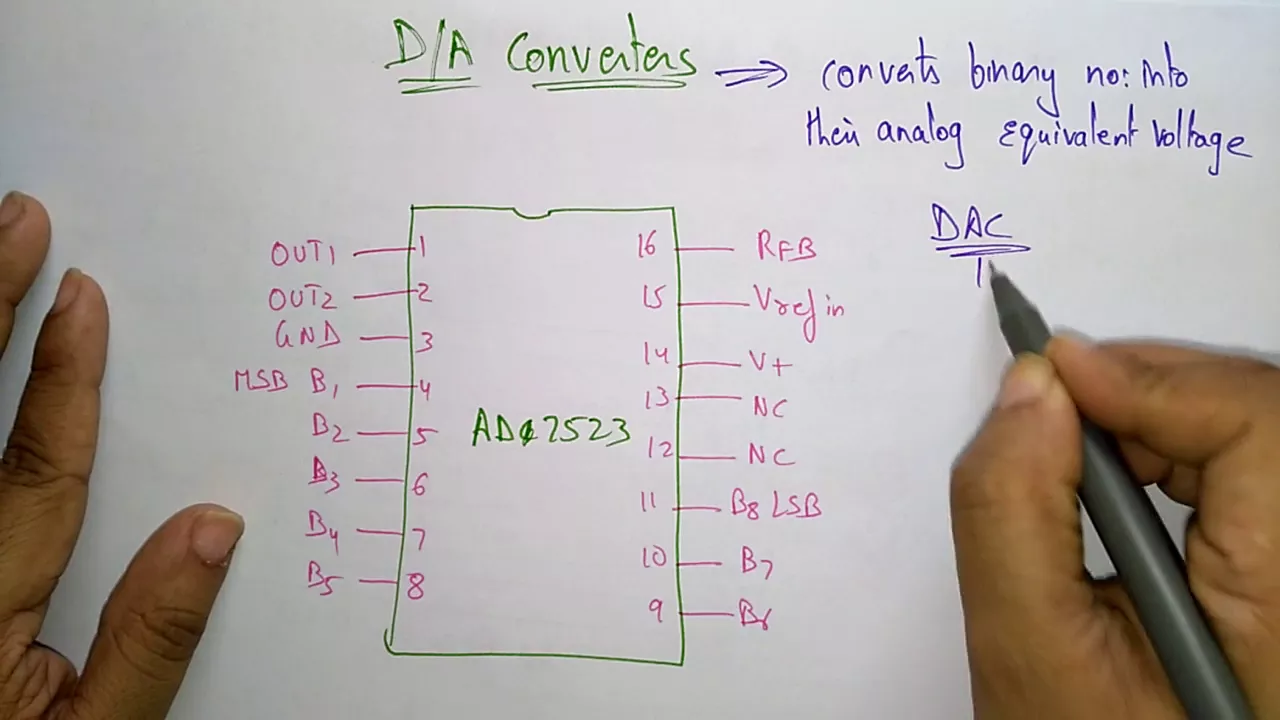 D/A Converters ⇒ converts binary no: into
their analog equivalent voltage
DAC
OUT1 1
OUT2 2
GND 3
MSB B1 4
B2 5
B3 6
B4 7
B5 8
AD 7523
16 RFB
15 Vref in
14 V+
13 NC
12 NC
11 B8 LSB
10 B7
9 B6